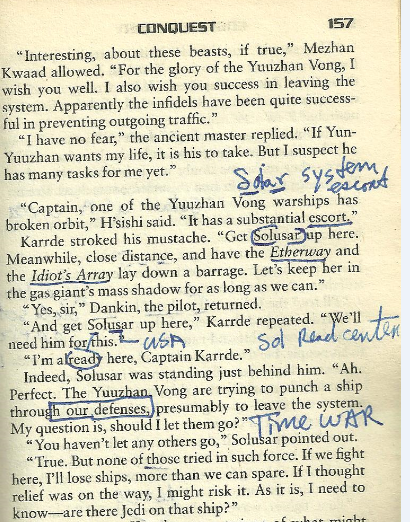 CONQUEST 157
"Interesting, about these beasts, if true," Mezhan
Kwaad allowed. "For the glory of the Yuuzhan Vong, I
wish you well. I also wish you success in leaving the
system. Apparently the infidels have been quite success-
ful in preventing outgoing traffic."
"I have no fear," the ancient master replied. "If Yun-
Yuuzhan wants my life, it is his to take. But I suspect he
has many tasks for me yet."
Solar System
escort
"Captain, one of the Yuuzhan Vong warships has
broken orbit," H'sishi said. "It has a substantial escort."
Karrde stroked his mustache. "Get Solusar up here.
Meanwhile, close distance, and have the Etherway and
the Idiot's Array lay down a barrage. Let's keep her in
the gas giant's mass shadow for as long as we can."
"Yes, sir," Dankin, the pilot, returned.
"And get Solusar up here," Karrde repeated. "We'll
need him for this."
USA
Sol
"I'm already here, Captain Karrde."
Indeed, Solusar was standing just behind him. "Ah.
Perfect. The Yuuzhan Vong are trying to punch a ship
through our defenses, presumably to leave the system.
My question is, should I let them go?"
Time WAR
"You haven't let any others go," Solusar pointed out.
"True. But none of those tried in such force. If we fight
here, I'll lose ships, more than we can spare. If I thought
relief was on the way, I might risk it. As it is, I need to
know—are there Jedi on that ship?"